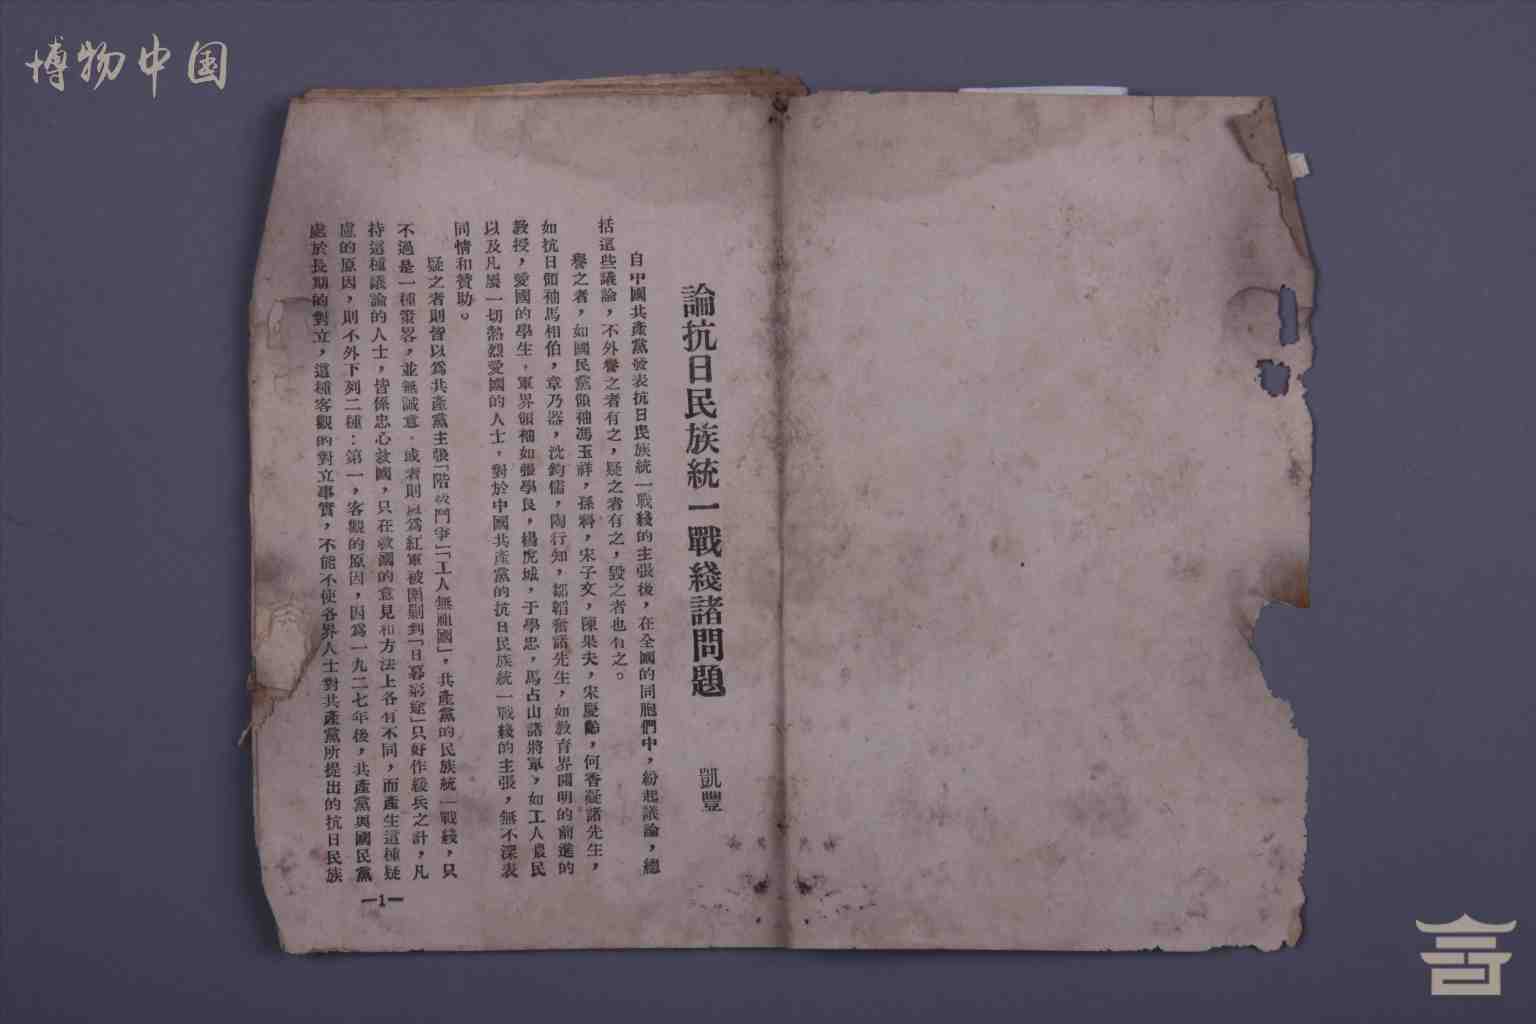 博物中国
論抗日民族統一戰綫諸問題
凱豐
自中國共產黨發表抗日民族統一戰綫的主張後，在全國的同胞們中，紛起議論，總
括這些議論，不外譽之者有之，疑之者有之，毀之者也有之。
譽之者，如國民黨領袖馮玉祥，孫科，宋子文，陳果夫，宋慶齡，何香凝諸先生，
如抗日領袖馬相伯，章乃器，沈鈞儒，陶行知，鄒韜奮諸先生，如教育界開明的前進的
教授，愛國的學生，軍界領袖如張學良，楊虎城，于學忠，馬占山諸將軍，如工人農民
以及凡屬一切熱烈愛國的人士，對於中國共產黨的抗日民族統一戰綫的主張，無不深表
同情和贊助。
疑之者則皆以爲共產黨主張「階級鬥爭」「工人無祖國」，共產黨的民族統一戰綫，只
不過是一種策畧，並無誠意，或者則以爲紅軍被圍剿到「日暮窮途」只好作緩兵之計，凡
持這種議論的人士，皆係忠心救國，只在救國的意見和方法上各有不同，而產生這種疑
慮的原因，則不外下列二種：第一，客觀的原因，因爲一九二七年後，共產黨與國民黨
處於長期的對立，這種客觀的對立事實，不能不使各界人士對共產黨所提出的抗日民族
—1—